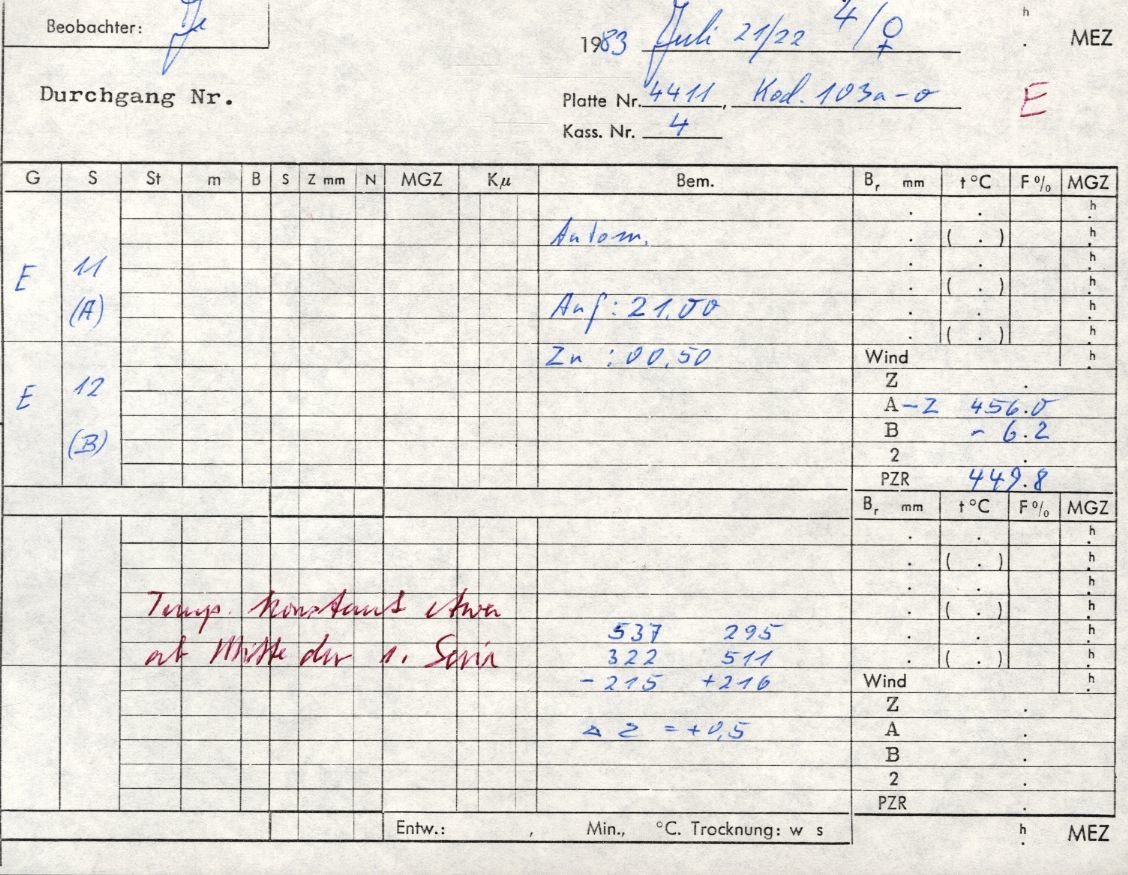 Beobachter: Je
1983 Juli 21/22 4/♀
h . MEZ
Durchgang Nr.
Platte Nr. 4411, Kod. 103a-O
E
Kass. Nr. 4
G S St m B S Z mm N MGZ Kμ Bem. Br mm t °C F % MGZ
. . h
Autom. . ( . ) .
. . h
E 11 . ( . ) .
(A) Auf: 21.00 . . h
. ( . ) .
Zu : 00.50 Wind h
Z .
E 12 A -Z 456.0
B - 6.2
(B) 2 .
PZR 449.8
Br mm t °C F % MGZ
. . h
. ( . ) .
. . h
Temp. konstant etwa . ( . ) .
537 295 . . h
ab Mitte der 1. Serie 322 511 . ( . ) .
-215 +216 Wind h
Z .
Δ Z = +0,5 A .
B .
2 .
PZR .
Entw.: , Min., °C. Trocknung: w s h . MEZ